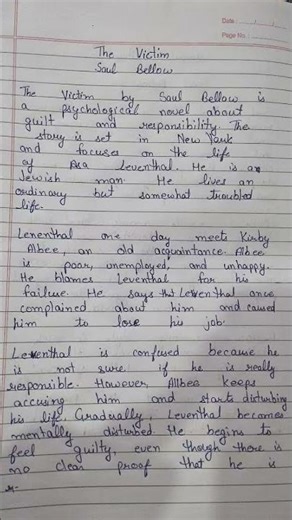 Date :
Page No. :
The Victim
Saul Bellow
The Victim by Saul Bellow is
a psychological novel about
guilt and responsibility. The
story is set in New York
and focuses on the life
of Asa Leventhal. He is an
Jewish man. He lives an
ordinary but somewhat troubled
life.
Lenenthal one day meets Kirby
Albee, an old acquaintance. Albee
is poor, unemployed, and unhappy.
He blames Leventhal for his
failure. He says that Leventhal once
complained about him and caused
him to lose his job.
Leventhal is confused because he
is not sure if he is really
responsible. However Allbee keeps
accusing him and starts disturbing
his life. Gradually, Leventhal becomes
mentally disturbed. He begins to
feel guilty, even though there is
no clear proof that he is